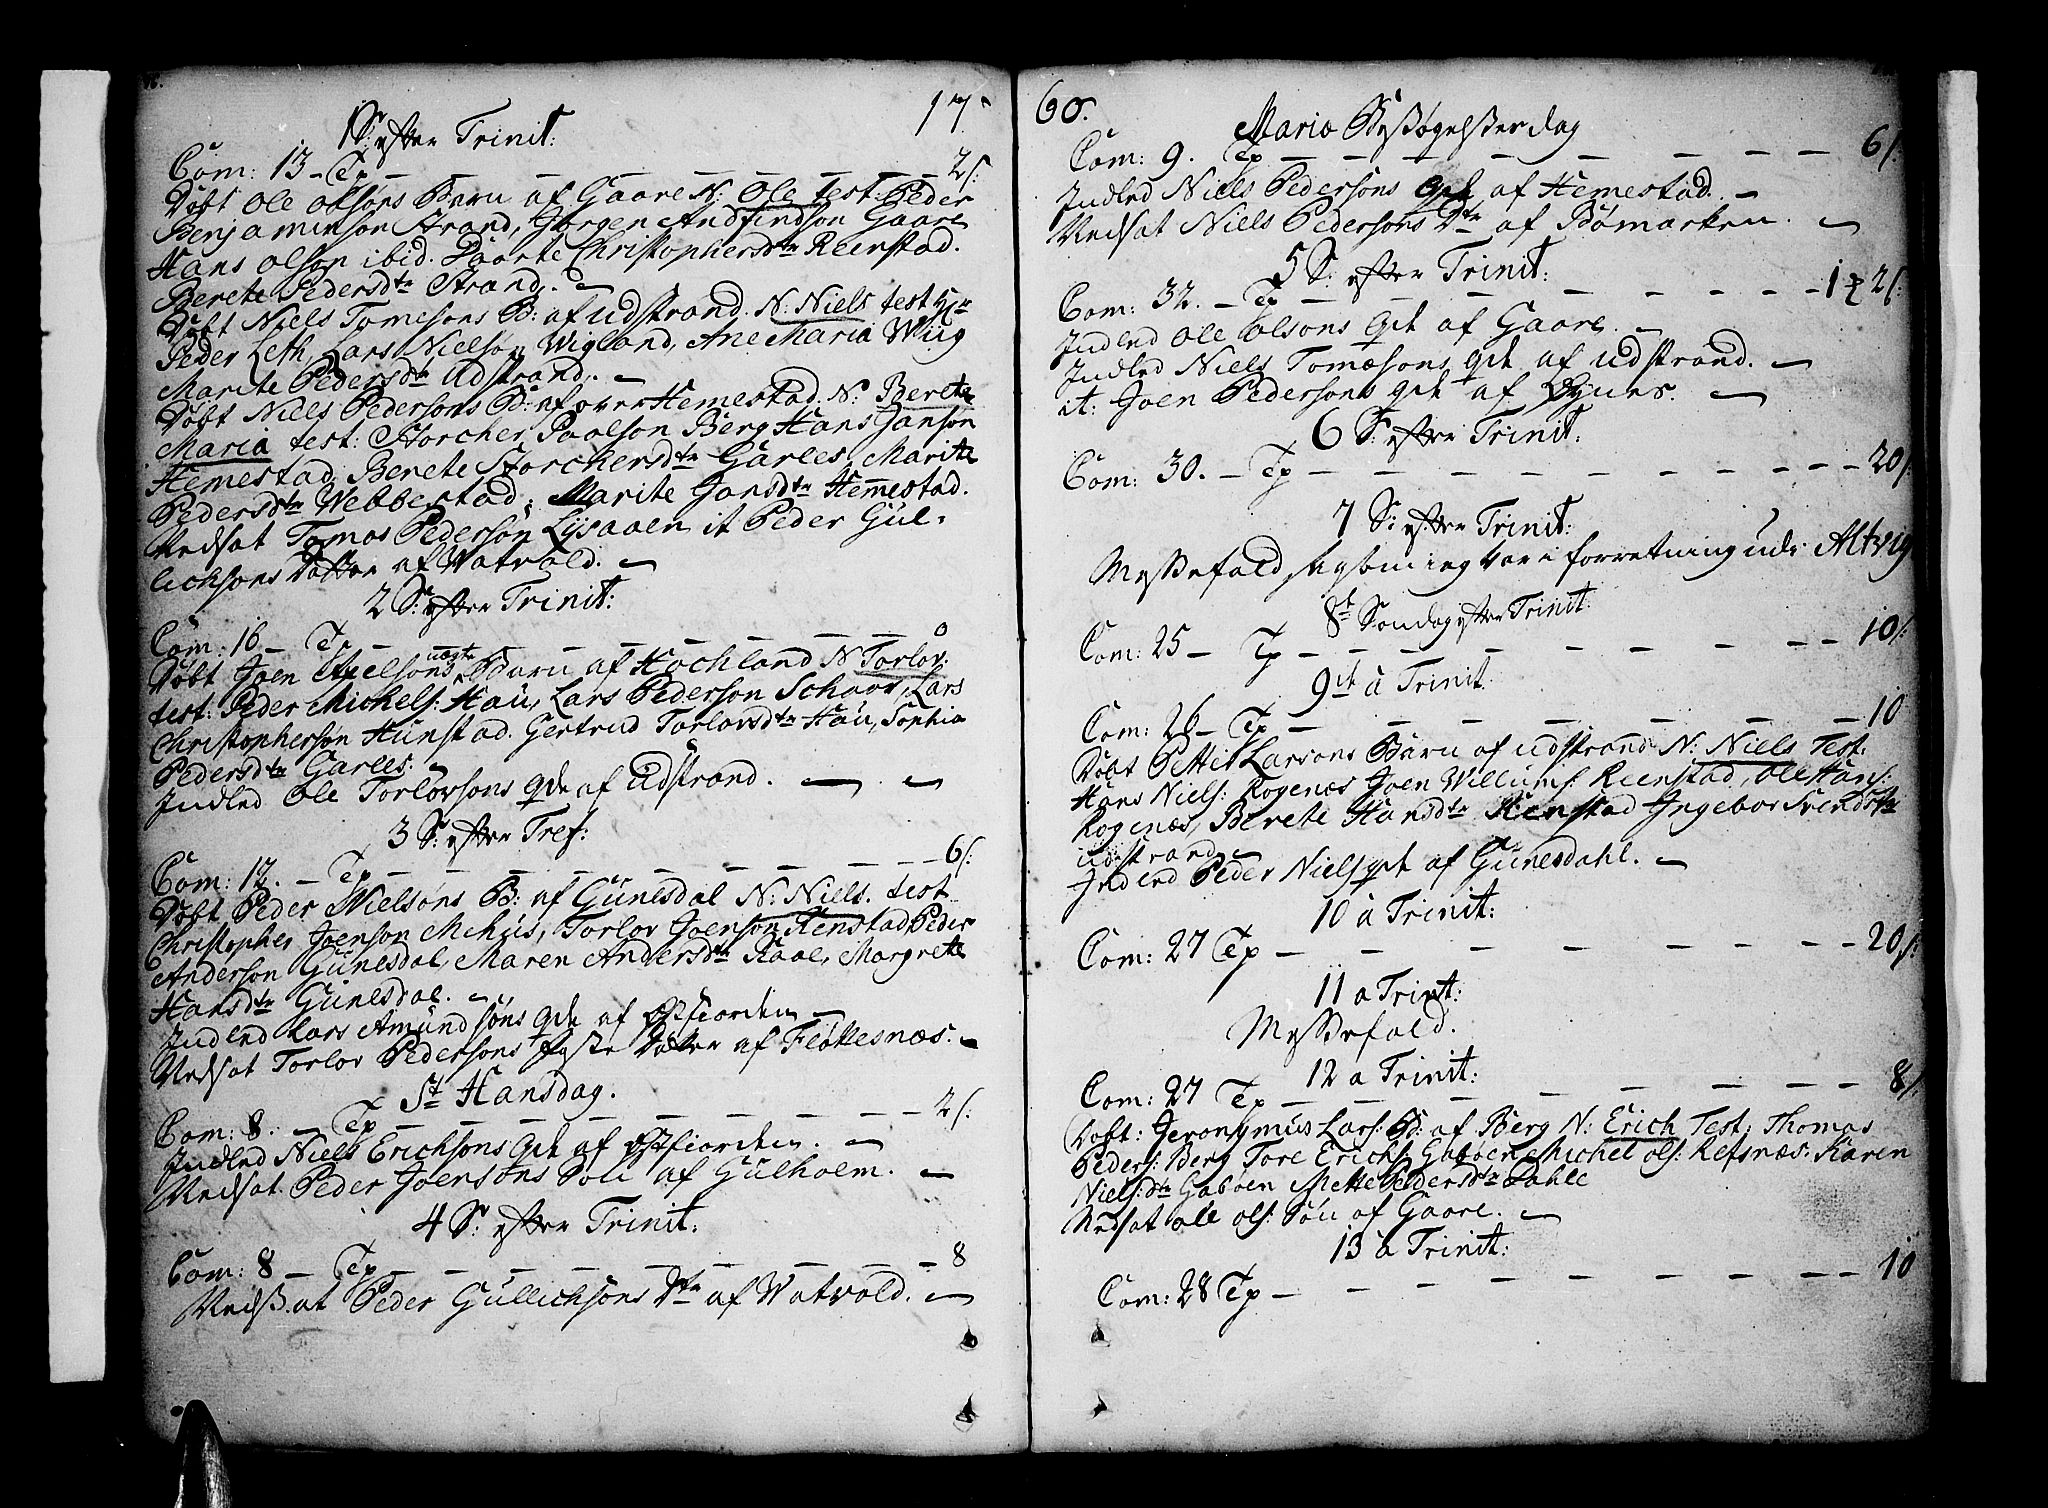 17
1 S: efter Trinit:
Com: 13 – Tp – – – – – 2 s:
Døbt Ole Olsøns Barn af Gaare N: Ole Test: Peder
Benjaminson Strand, Jørgen Andfindson Gaare
Hans Olson ibid. Christophersdtr Reenstad.
Berete Pedersdtr Strand.
Døbt Niels Tomesons B: af Udstrand. N: Niels test Hr
Peder Leth, Lars Nielsøn Wigland, Ane Maria Wiig
Marite Pedersdtr Udstrand.
Døbt Niels Pedersons B: af over Hemestad. N: Berete
Maria test: Storcher Paalson Berg Hans Janson
Hemestad, Berete Storckersdtr Garees, Marite
Pedersdtr Webbestad, Marite Jansdtr Hemmestad.
Nedsat Tomas Pederson Lysaaen it Peder Gül-
lichsons Datter af Watvold.
2 S: efter Trinit:
Com: 16 – Tp – – – – 0
Døbt Joen Axelsons uægte Barn af Hochland N Torlov.
test: Peder Michels: Haü, Lars Pederson Schaar, Lars
Christopherson Hunstad. Gertrud Torlovsdtr Haü, Sophia
Pedersdtr Garees.
Indled Ole Torlovsons qde af Udstrand.
3 S: efter Tref:
Com: 12. – Tp – – – – – 6 s:
Døbt Peder Nielsøns B: af Günesdal N: Niels. test
Christopher Joenson Mehüs, Torlov Joenson Renstad, Peder
Anderson Günesdal, Maren Andersdtr Kaae, Margrete
Hansdtr Günesdal.
Indled Lars Amündsøns qde af Østfiorden
Nedsat Torlov Pedersons Datter af Fløkesnæs.
St Hansdag.
Com: 8. – Tp – – – – – 2 s:
Indled Niels Ericksons qde af Østfiorden.
Nedsat Peder Joensøns Søn af Gülholm.
4 S: efter Trinit:
Com: 8 – Tp – – – – – 8
Nedsat Peder Gullichsons Dtr af Watvold.
60.
Mariæ Besøgelses dag
Com: 9. Tp – – – – – 6 s:
Indled Niels Pedersøns qde af Hemestad.
Nedsat Niels Pedersons Dtr af Bømarken.
5 S: efter Trinit:
Com: 32. – Tp – – – – – 1 2 s:
Indled Ole Olsons qde af Gaare.
Indled Niels Tomæsons qde af Udstrand.
it: Joen Pedersons qde af Bynes.
6 S: efter Trinit:
Com: 30. – Tp – – – – – 20 s:
7 S: efter Trinit:
Messefald, saasom ieg var i forretning udi Altvig
8de Søndag efter Trinit:
Com: 25 – Tp – – – – – 10 s:
9de à Trinit
Com: 26 – Tp – – – – – 10
Døbt Petter Larsons Barn af Udstrand N: Niels Test:
Hans Niels: Rogenæs Joen Willums: Reenstad, Ole Hans:
Rogenæs, Berete Hansdtr Renstad Ingebor Svendsdtr
udstrand
Indled Peder Niels qde af Günesdahl.
10 à Trinit:
Com: 27 Tp – – – – – 20 s:
11 a Trinit:
Messefald.
12 a Trinit:
Com: 27 Tp – – – – – 8 s:
Døbt: Jeronymus Lars: B: af Berg N: Erich Test: Thomas
Peders: Berg Tore Erichs: Gabøen Michel Ols: Refsnæs: Karen
Niels:dtr Gabøen Mette Pedersdtr Dahle
Nedsat Ole Ols: Søn af Gaare.
13 à Trinit:
Com: 28 Tp – – – – – 10